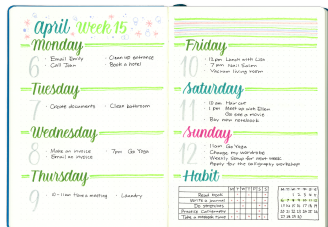 April Week 15
Monday
6
Email Emily
Call Jean
Clean up entrance
Book a hotel
Tuesday
7
Donate documents
Clean bathroom
Wednesday
8
Make an invoice
Email an invoice
7pm Go Yoga
Thursday
9
10-11am Have a meeting
Laundry
Friday
10
12pm Lunch with Lisa
7pm Nail Salon
Vacuum living room
Saturday
11
10am Hair cut
1pm Meet up with Ellen
Go see a movie
Buy new notebook
Sunday
12
11am Go Yoga
Change my wardrobe
Weekly Setup for next week
Apply for the calligraphy workshop
Habit
M T W T F S S
Read book
Write a journal
Do stretches
Practice Calligraphy
Take a walk